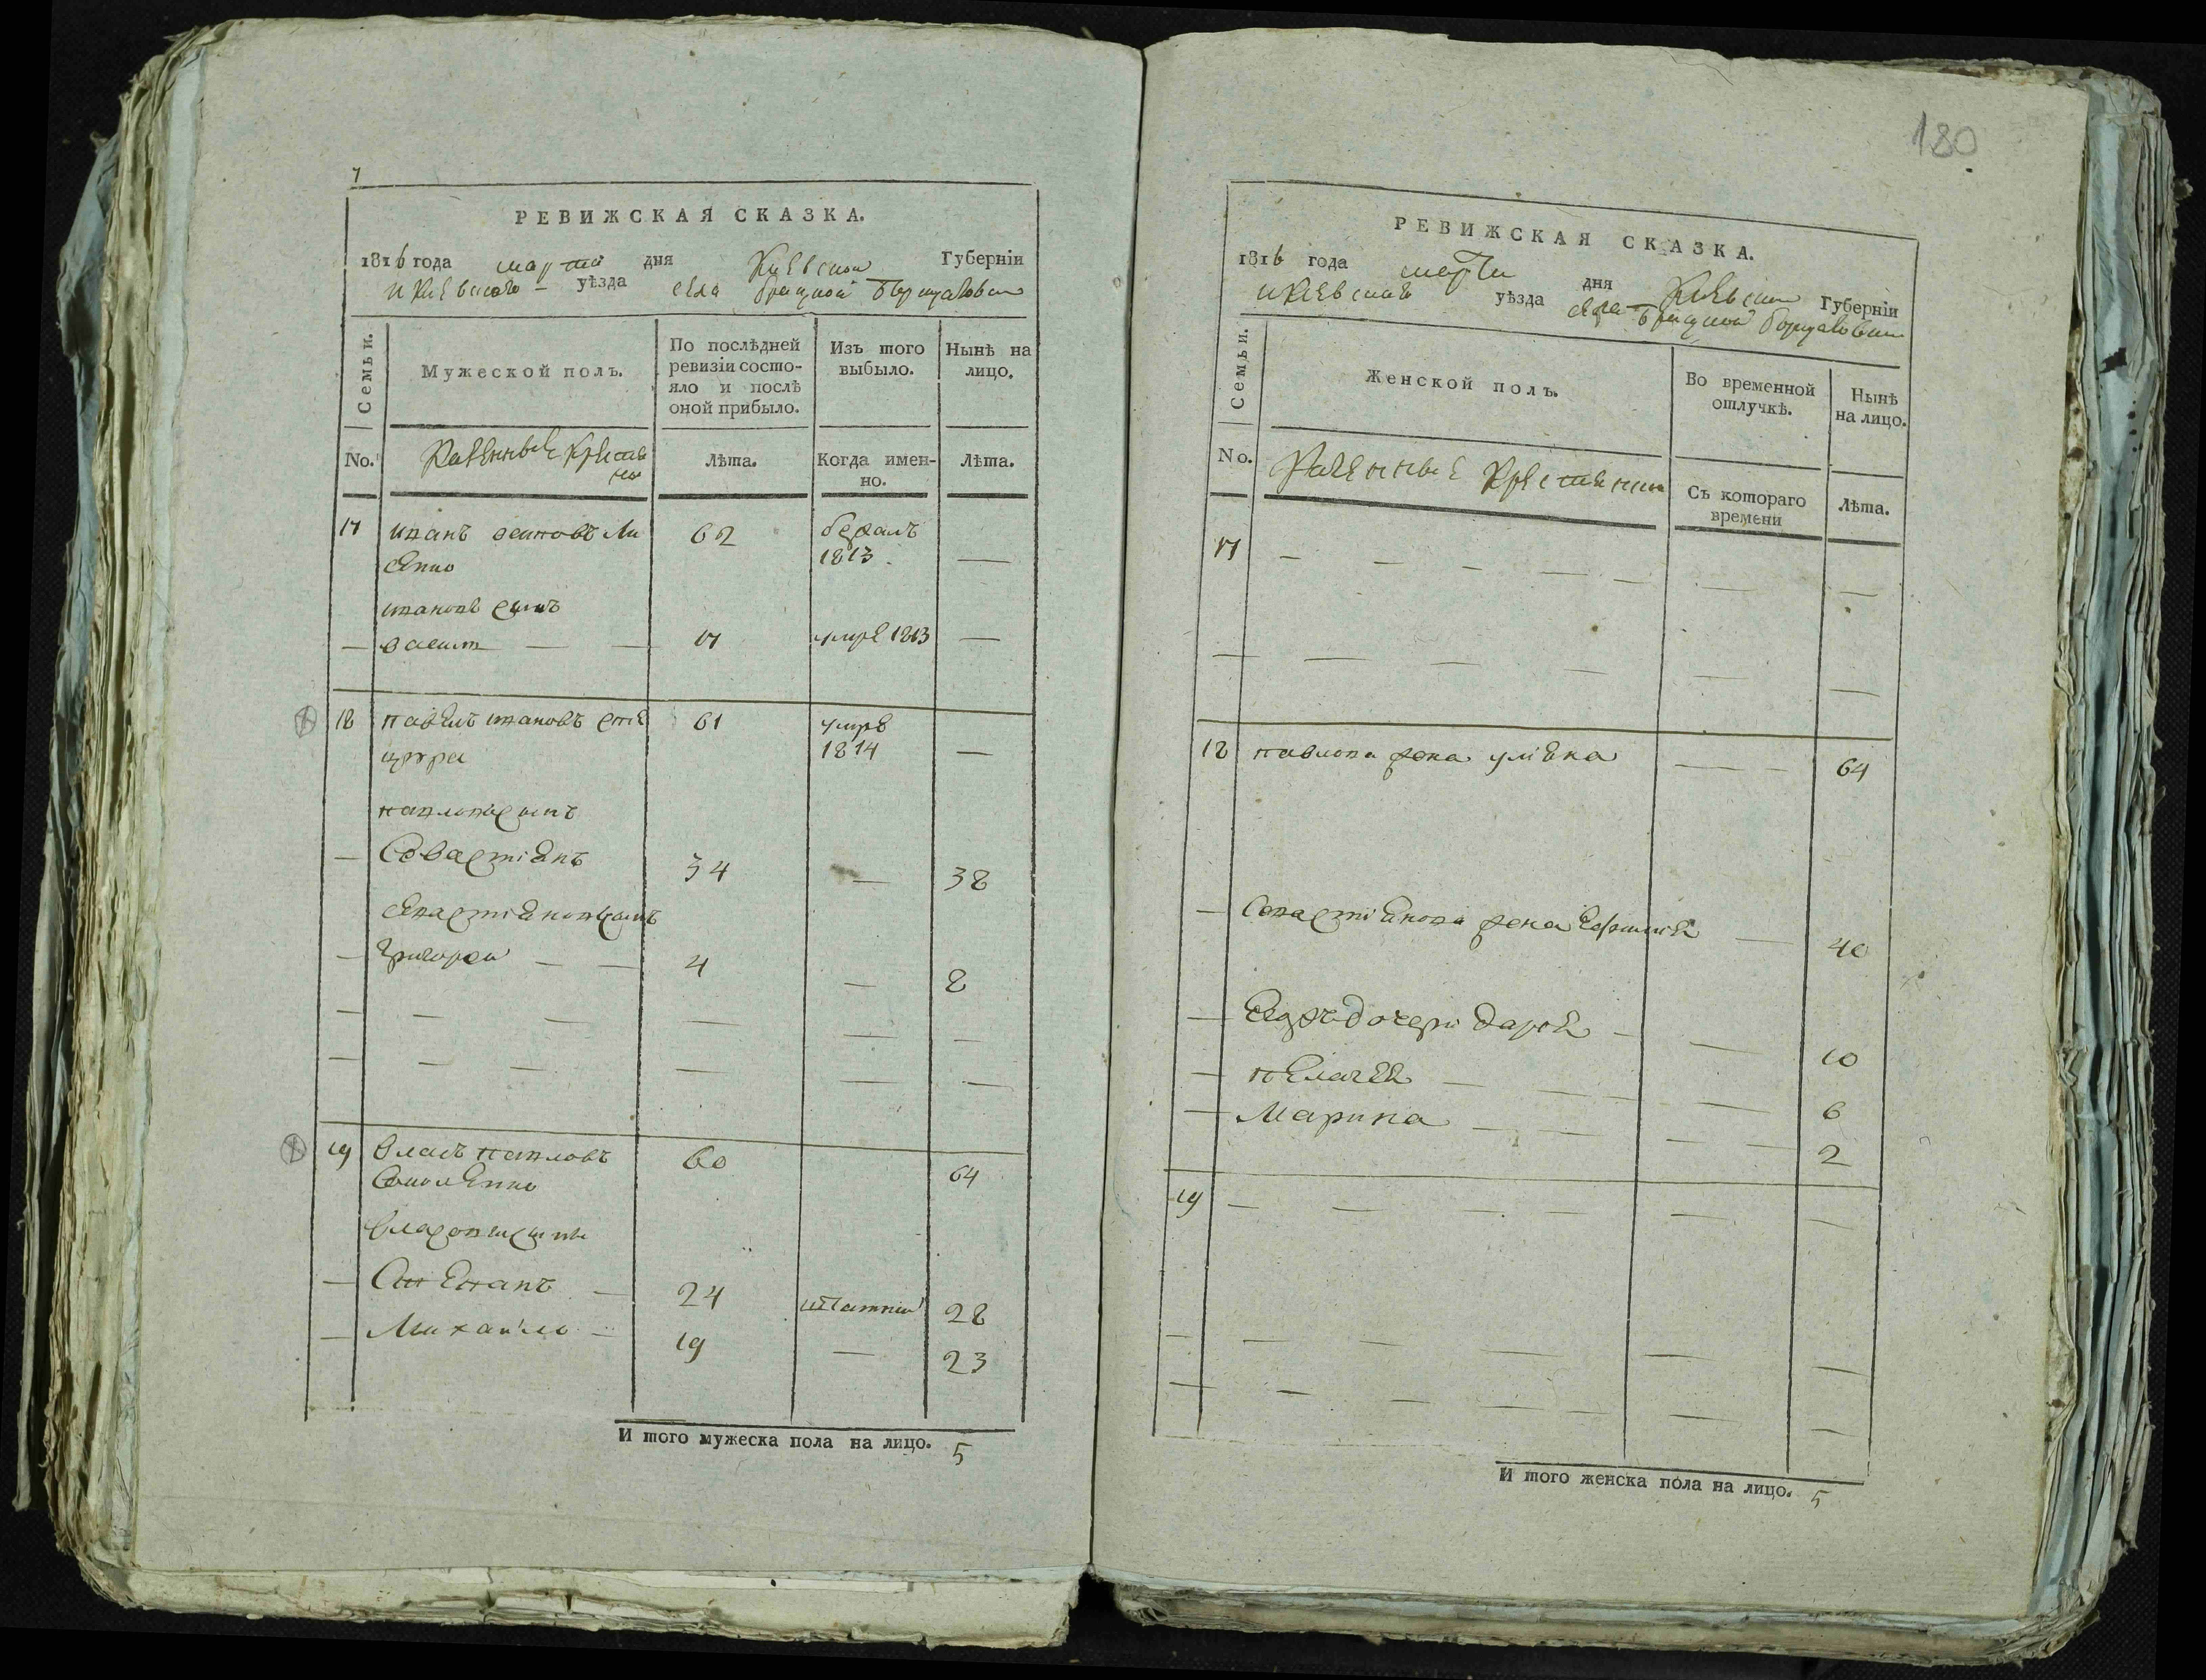 7
РЕВИЖСКАЯ СКАЗКА.
1816 года марта дня Киевской Губерніи
и Киевского уѣзда села Братской Борщаговки
Семьи. Мужеской полъ. По послѣдней ревизіи состояло и послѣ оной прибыло. Изъ того выбыло. Нынѣ на лицо.
No. Казенные Крестьяне Лѣта. Когда именно. Лѣта.
17 иванъ осиповъ Ли 62 бежалъ
сенко 1813 —
ивановъ сынъ
— осипъ — — 17 умре 1813 —
18 павелъ ивановъ 61 умре
1814 —
павловъ сынъ
— Савастіянъ 34 — 38
савастіяновъ сынъ
— Григорей — — 4 — 8
— — — — — —
— — — — — —
19 власъ павловъ 60 64
власовы сыны
— Степанъ — 24 28
— Михайло — 19 — 23
И того мужеска пола на лицо. 5
180
РЕВИЖСКАЯ СКАЗКА.
1816 года марта дня Киевской Губерніи
и Киевского уѣзда села Братской Борщаговки
Семьи. Женской полъ. Во временной отлучкѣ. Нынѣ на лицо.
No. Казенные Крестьянки Съ котораго времени Лѣта.
17 — — — — — — —
— — — — — —
18 павлова жена уліяна — — — 64
— Савастіянова жена — 40
— дочери дарія — — 10
— пелагея — — — — 6
— Марина — — — — 2
19 — — — — — —
— — — — — —
— — — — — — —
И того женска пола на лицо. 5